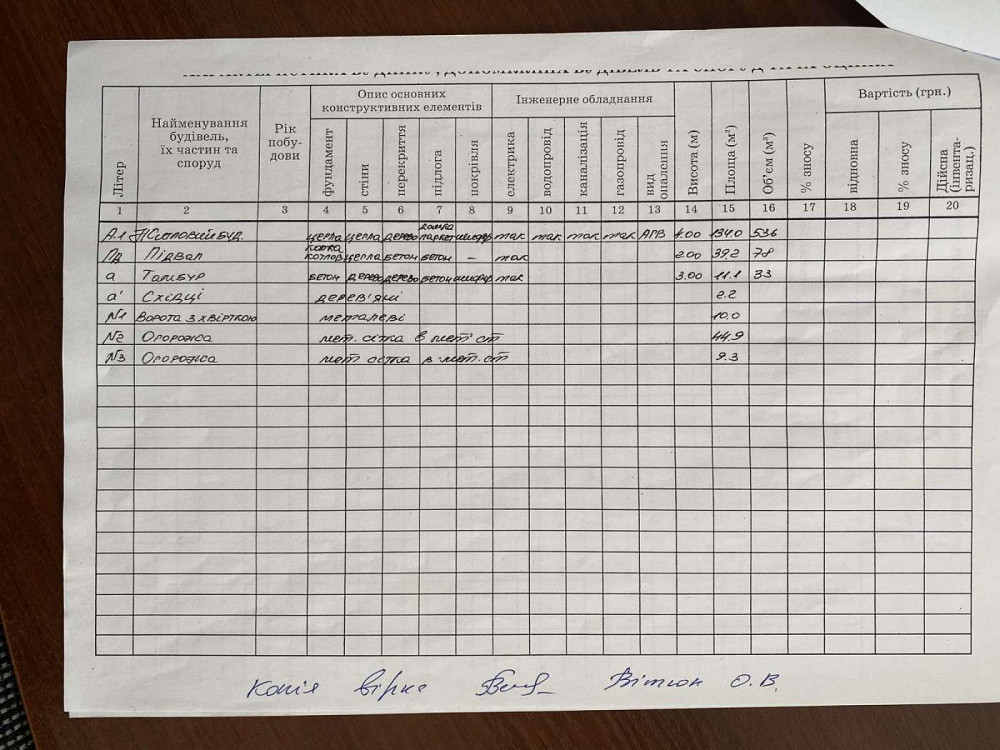 Опис основних конструктивних елементів Інженерне обладнання Вартість (грн.)
Літер Найменування будівель, їх частин та споруд Рік побу-дови фундамент стіни перекриття підлога покрівля електрика водопровід каналізація газопровід вид опалення Висота (м) Площа (м²) Об'єм (м³) % зносу відновна % зносу Дійсна (інвента-ризац.)
1 2 3 4 5 6 7 8 9 10 11 12 13 14 15 16 17 18 19 20
А-1 буд. цегла цегла дерево паркет шифер так так так так АГВ 4.00 134.0 536
Пд Підвал цегла бетон бетон – так 2.00 39,2 78
а Тамбур бетон дерево дерево бетон шифер так 3.00 11.1 33
а' Східці дерев'яні 2.2
№1 Ворота з хвірткою металеві 10.0
№2 Огорожа мет. сітка в мет. ст 44.9
№3 Огорожа мет сітка в мет. ст 9.3
Копія вірна О.В.